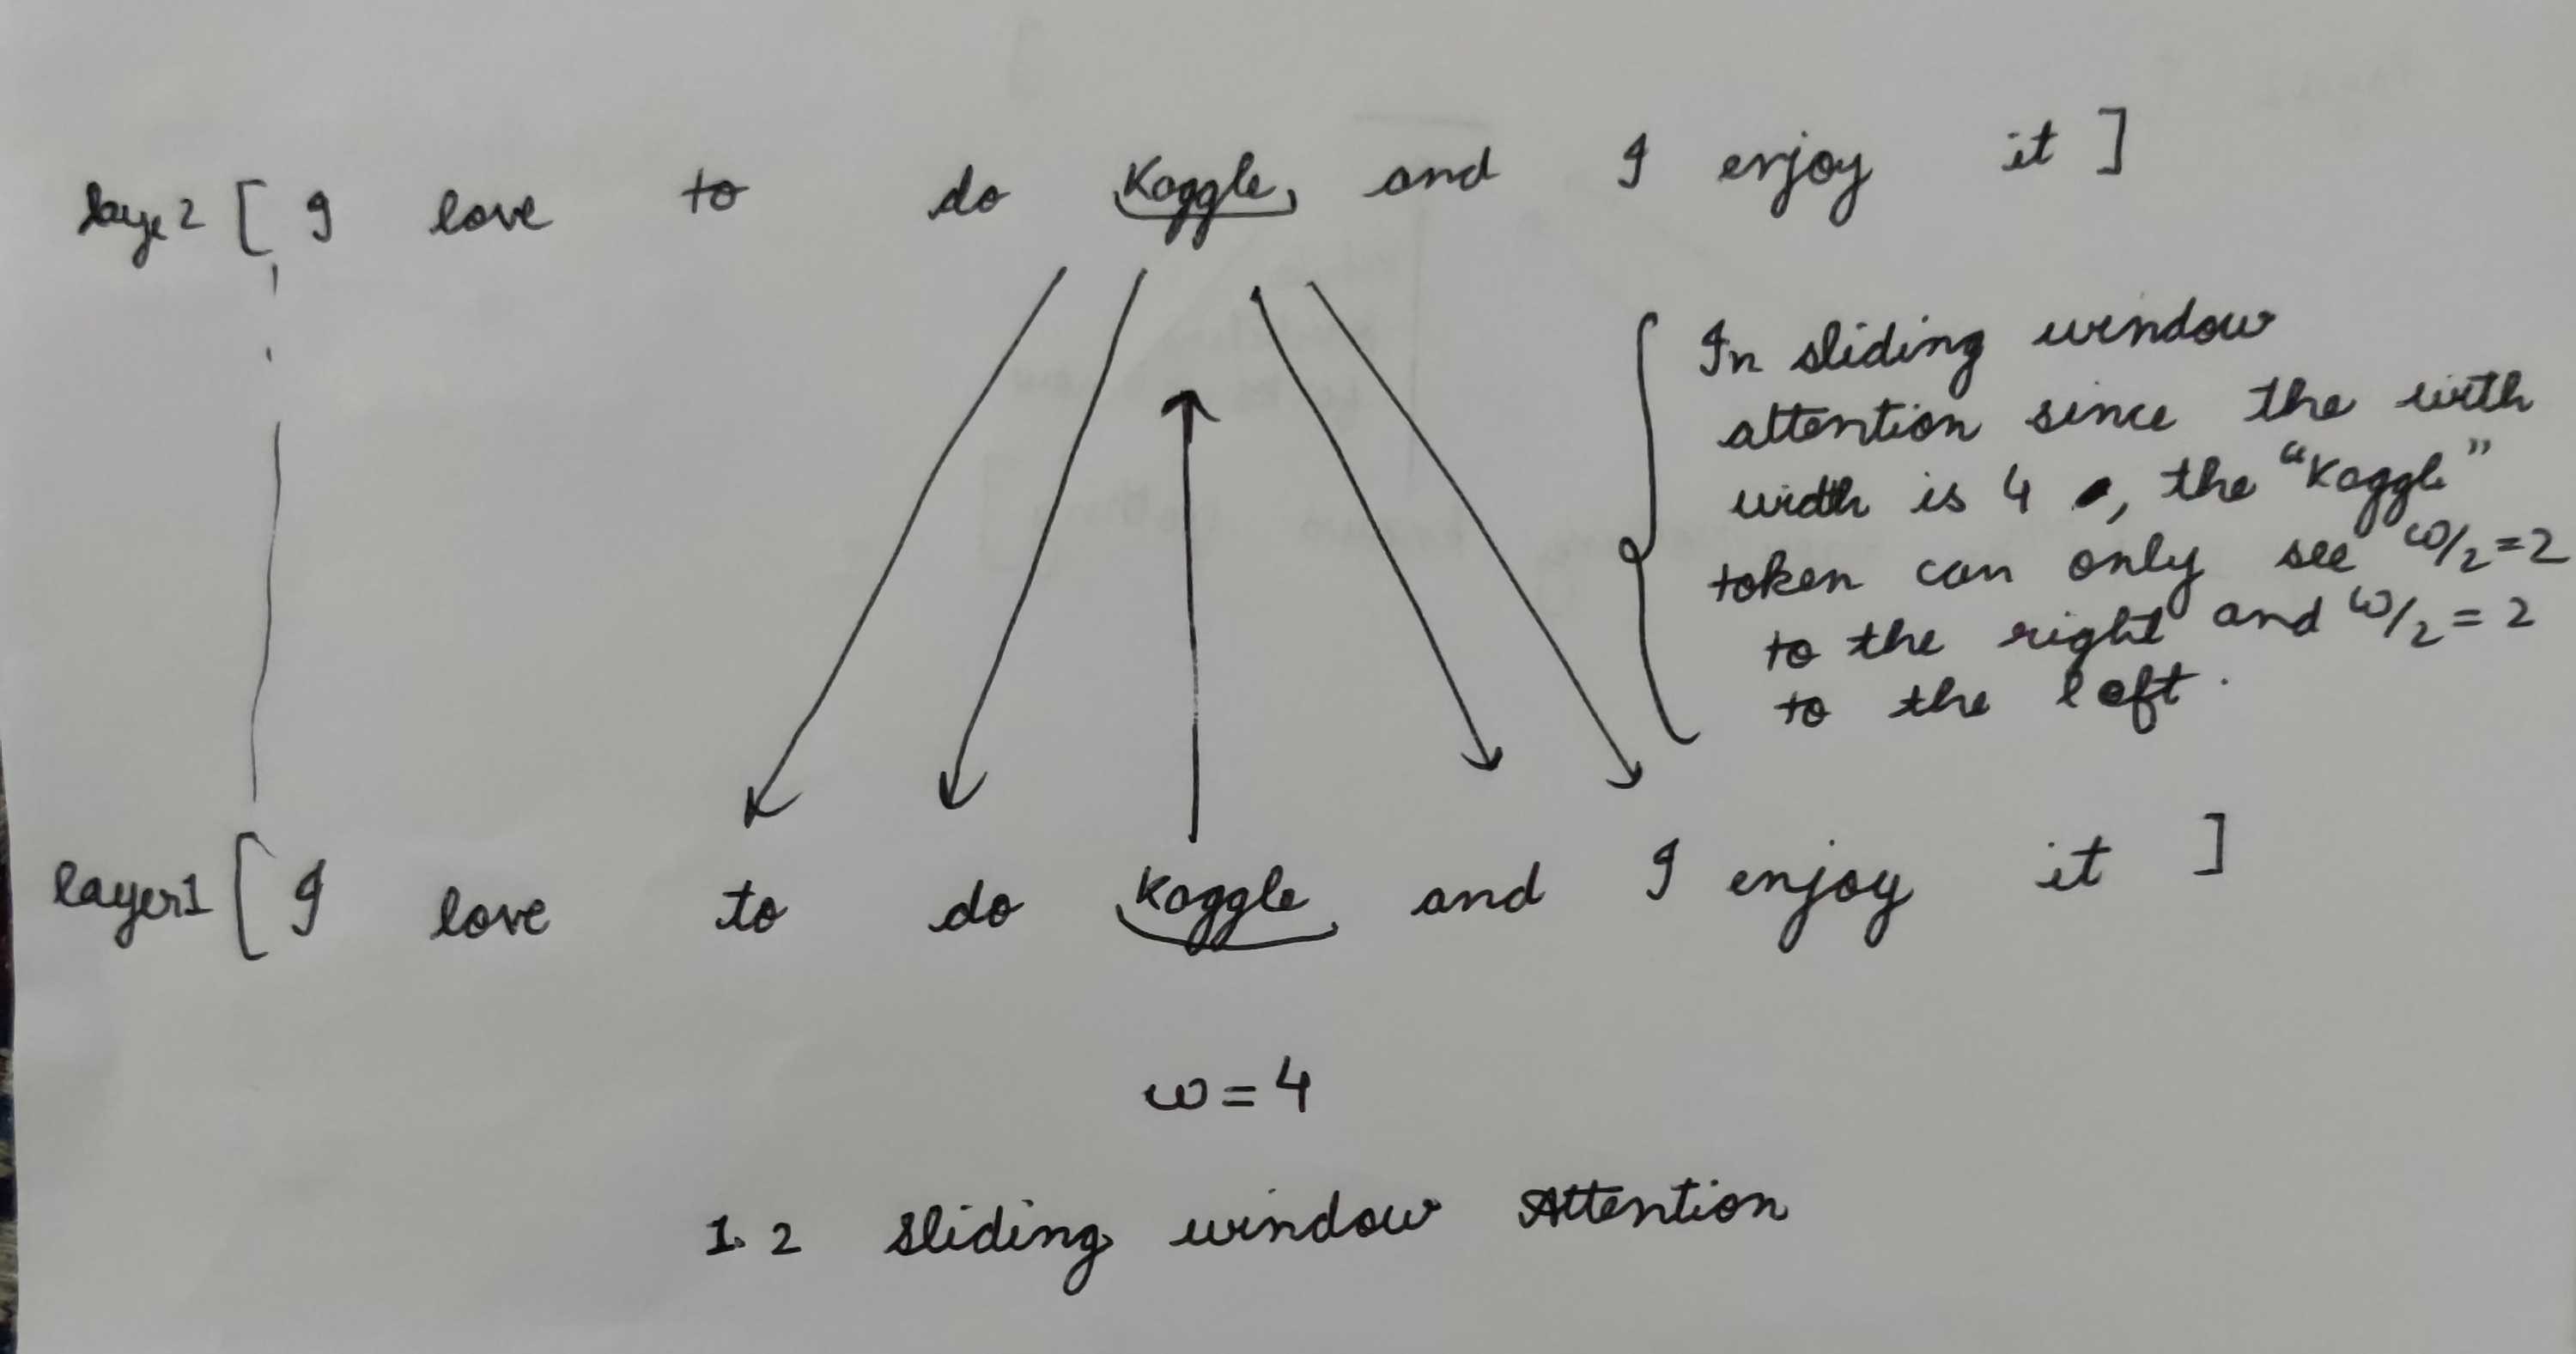 laye2 [ I love to do Kaggle and I enjoy it ]
In sliding window
attention since the with
width is 4 , the "Kaggle"
token can only see w/2 = 2
to the right and w/2 = 2
to the left.
layer1 [ I love to do Kaggle and I enjoy it ]
w = 4
1.2 sliding window Attention